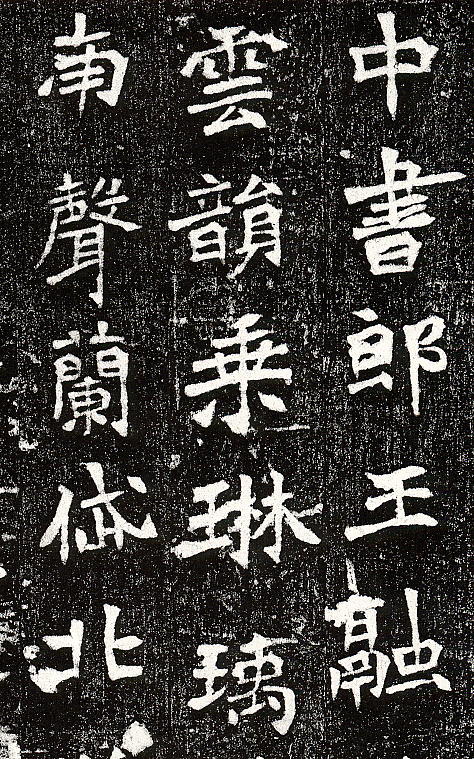 中書郎王融
雲韻乗琳瑀
南聲蘭岱北